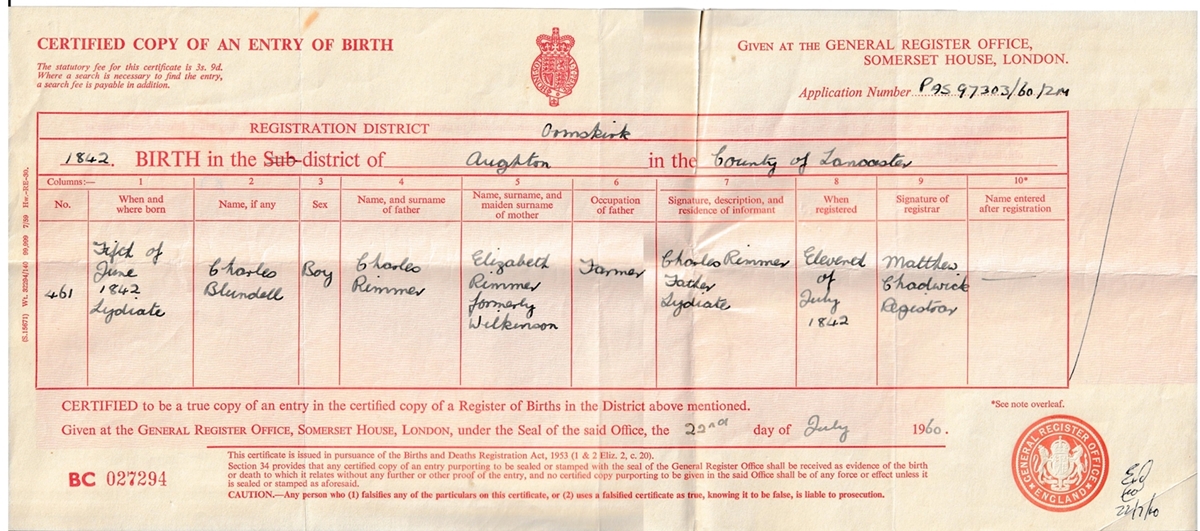 CERTIFIED COPY OF AN ENTRY OF BIRTH
The statutory fee for this certificate is 3s. 9d.
Where a search is necessary to find the entry,
a search fee is payable in addition.
GIVEN AT THE GENERAL REGISTER OFFICE,
SOMERSET HOUSE, LONDON.
Application Number PAS 97303/60/2M
REGISTRATION DISTRICT Ormskirk
1842. BIRTH in the Sub-district of Aughton in the County of Lancaster
Columns:— 1 2 3 4 5 6 7 8 9 10*
No.
When and
where born
Name, if any
Sex
Name, and surname
of father
Name, surname, and
maiden surname
of mother
Occupation
of father
Signature, description, and
residence of informant
When
registered
Signature of
registrar
Name entered
after registration
461
Fifth of
June
1842
Lydiate
Charles
Blundell
Boy
Charles
Rimmer
Elizabeth
Rimmer
formerly
Wilkinson
Farmer
Charles Rimmer
Father
Lydiate
Elevend
of
July
1842
Matthew
Chadwick
Registrar
CERTIFIED to be a true copy of an entry in the certified copy of a Register of Births in the District above mentioned.
*See note overleaf.
Given at the GENERAL REGISTER OFFICE, SOMERSET HOUSE, LONDON, under the Seal of the said Office, the 22nd day of July 1960.
This certificate is issued in pursuance of the Births and Deaths Registration Act, 1953 (1 & 2 Eliz. 2, c. 20).
Section 34 provides that any certified copy of an entry purporting to be sealed or stamped with the seal of the General Register Office shall be received as evidence of the birth
or death to which it relates without any further or other proof of the entry, and no certified copy purporting to be given in the said Office shall be of any force or effect unless it
is sealed or stamped as aforesaid.
CAUTION.—Any person who (1) falsifies any of the particulars on this certificate, or (2) uses a falsified certificate as true, knowing it to be false, is liable to prosecution.
BC 027294
GENERAL REGISTER OFFICE
ENGLAND
22/7/60